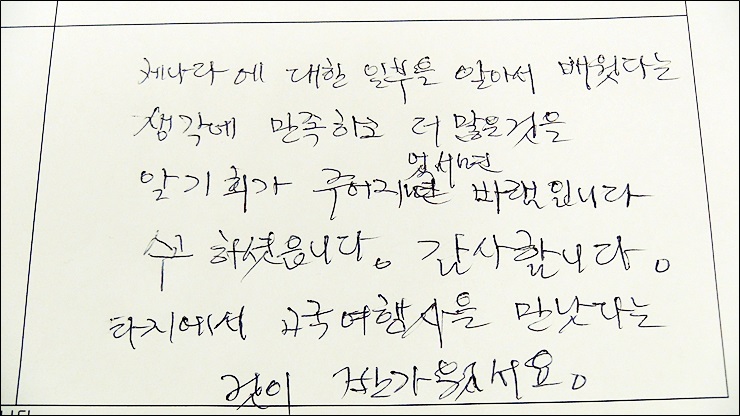 제나라에 대한 일부를 알아서 배웠다는
생각에 만족하고 더 많은것을
었서면
알 기회가 주어지 바램입니다
수고 하셨읍니다。 감사합니다。
타지에서 여행사을 만낫다는
것이 반가웠서요。